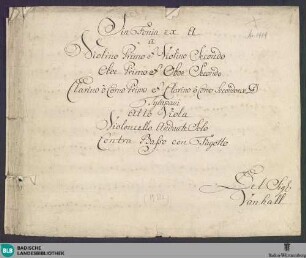 Sinfonia ex A
a
Violino Primo è Violino Secondo
Oboe Primo è Oboe Secondo
Clarino ò Corno Primo è Clarino ò Corno Secondo ex D
Tympani
Alto Viola
Violoncello Andante Solo
Contra Basso con Fagotto
Del Sigl
Vanhall
BLB
BADISCHE
LANDESBIBLIOTHEK